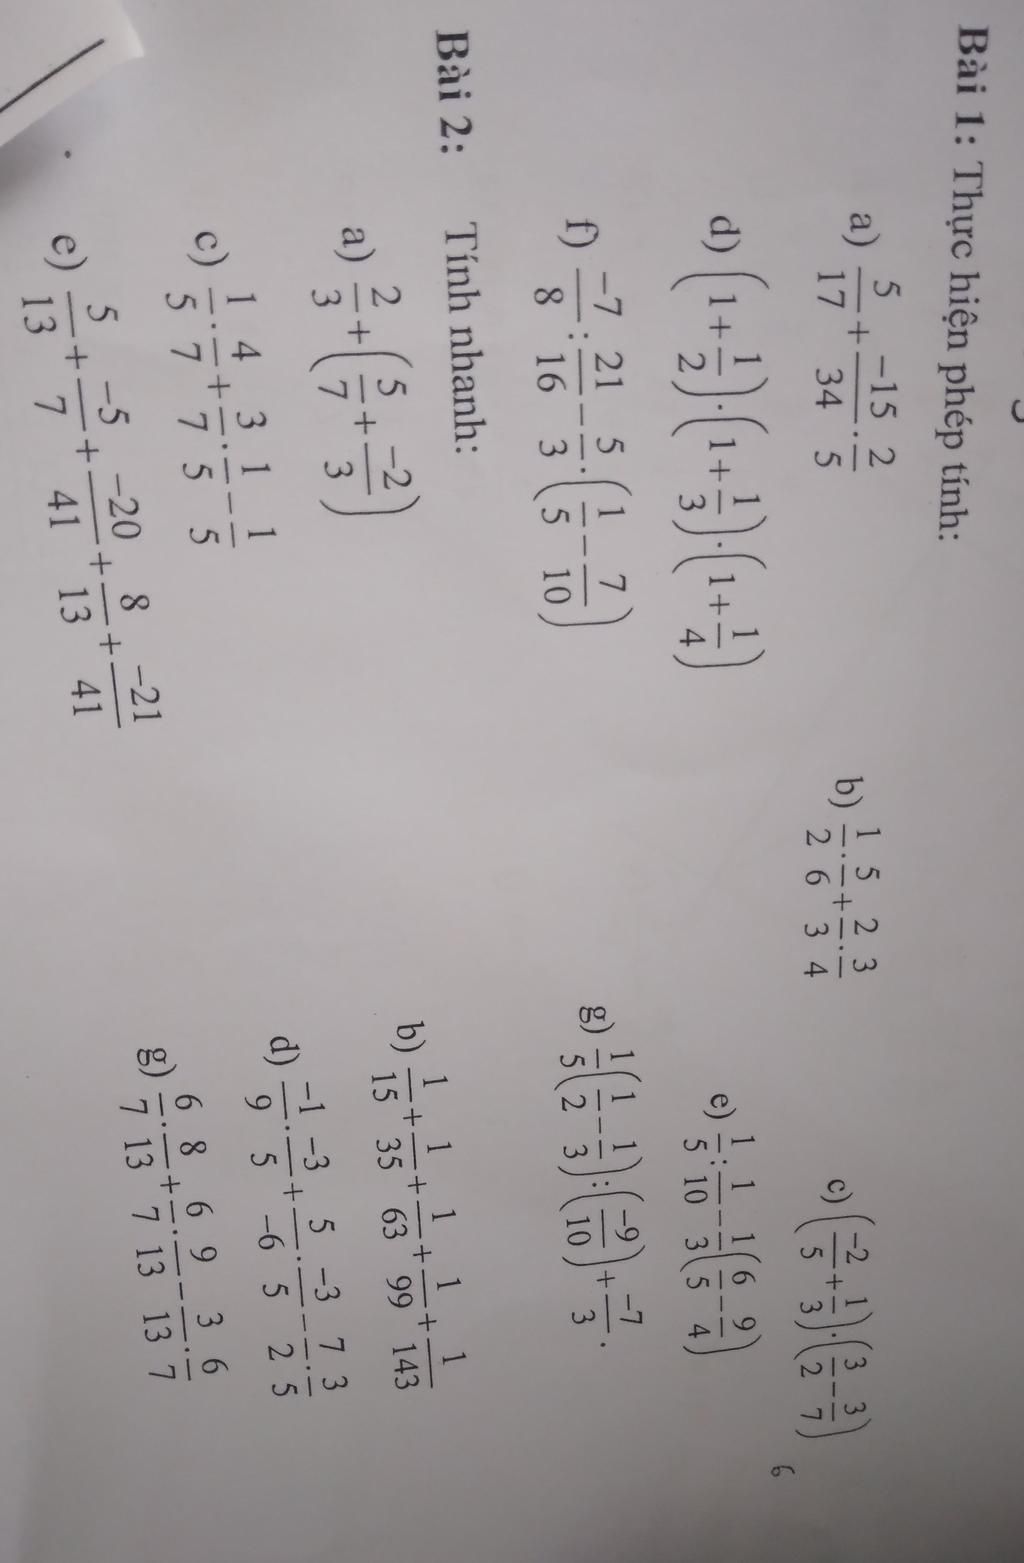 Bài 1: Thực hiện phép tính:
a) 5/17 + -15/34 . 2/5 b) 1/2 . 5/6 + 2/3 . 3/4 c) (-2/5 + 1/3) . (3/2 - 3/7)
6
d) (1 + 1/2) . (1 + 1/3) . (1 + 1/4) e) 1/5 : 1/10 - 1/3 (6/5 - 9/4)
f) -7/8 : 21/16 - 5/3 . (1/5 - 7/10) g) 1/5 (1/2 - 1/3) : (-9/10) + -7/3 .
Bài 2: Tính nhanh:
a) 2/3 + (5/7 + -2/3) b) 1/15 + 1/35 + 1/63 + 1/99 + 1/143
c) 1/5 . 4/7 + 3/7 . 1/5 - 1/5 d) -1/9 . -3/5 + 5/-6 . -3/5 - 7/2 . 3/5
e) 5/13 + -5/7 + -20/41 + 8/13 + -21/41 g) 6/7 . 8/13 + 6/7 . 9/13 - 3/13 . 6/7